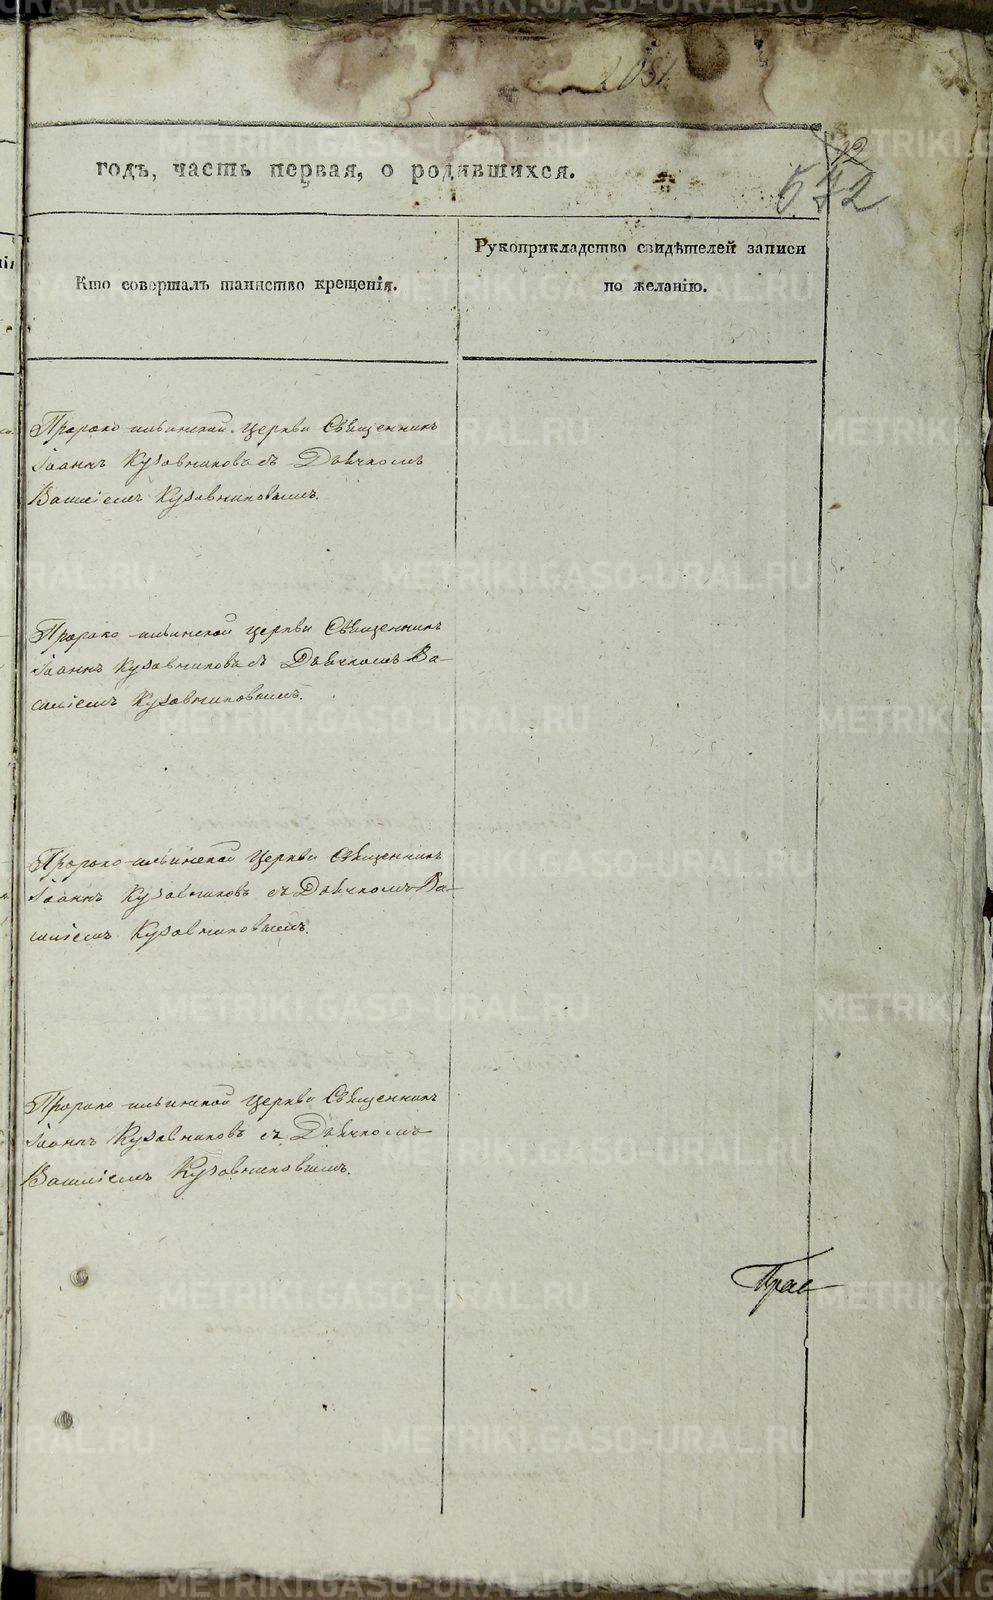 годъ, часть первая, о родившихся.
12
672
Кто совершалъ таинство крещенія.
Рукоприкладство свидѣтелей записи
по желанію.
Пророко-ильинской церкви Священникъ
Іоаннъ Кузовниковъ съ Дьячкомъ
Василіемъ Кузовниковымъ.
Пророко-ильинской церкви Священникъ
Іоаннъ Кузовниковъ съ Дьячкомъ Ва-
силіемъ Кузовниковымъ.
Пророко-ильинской церкви Священникъ
Іоаннъ Кузовниковъ съ Дьячкомъ Ва-
силіемъ Кузовниковымъ.
Пророко-ильинской церкви Священникъ
Іоаннъ Кузовниковъ съ Дьячкомъ
Василіемъ Кузовниковымъ.
METRIKI.GASO-URAL.RU